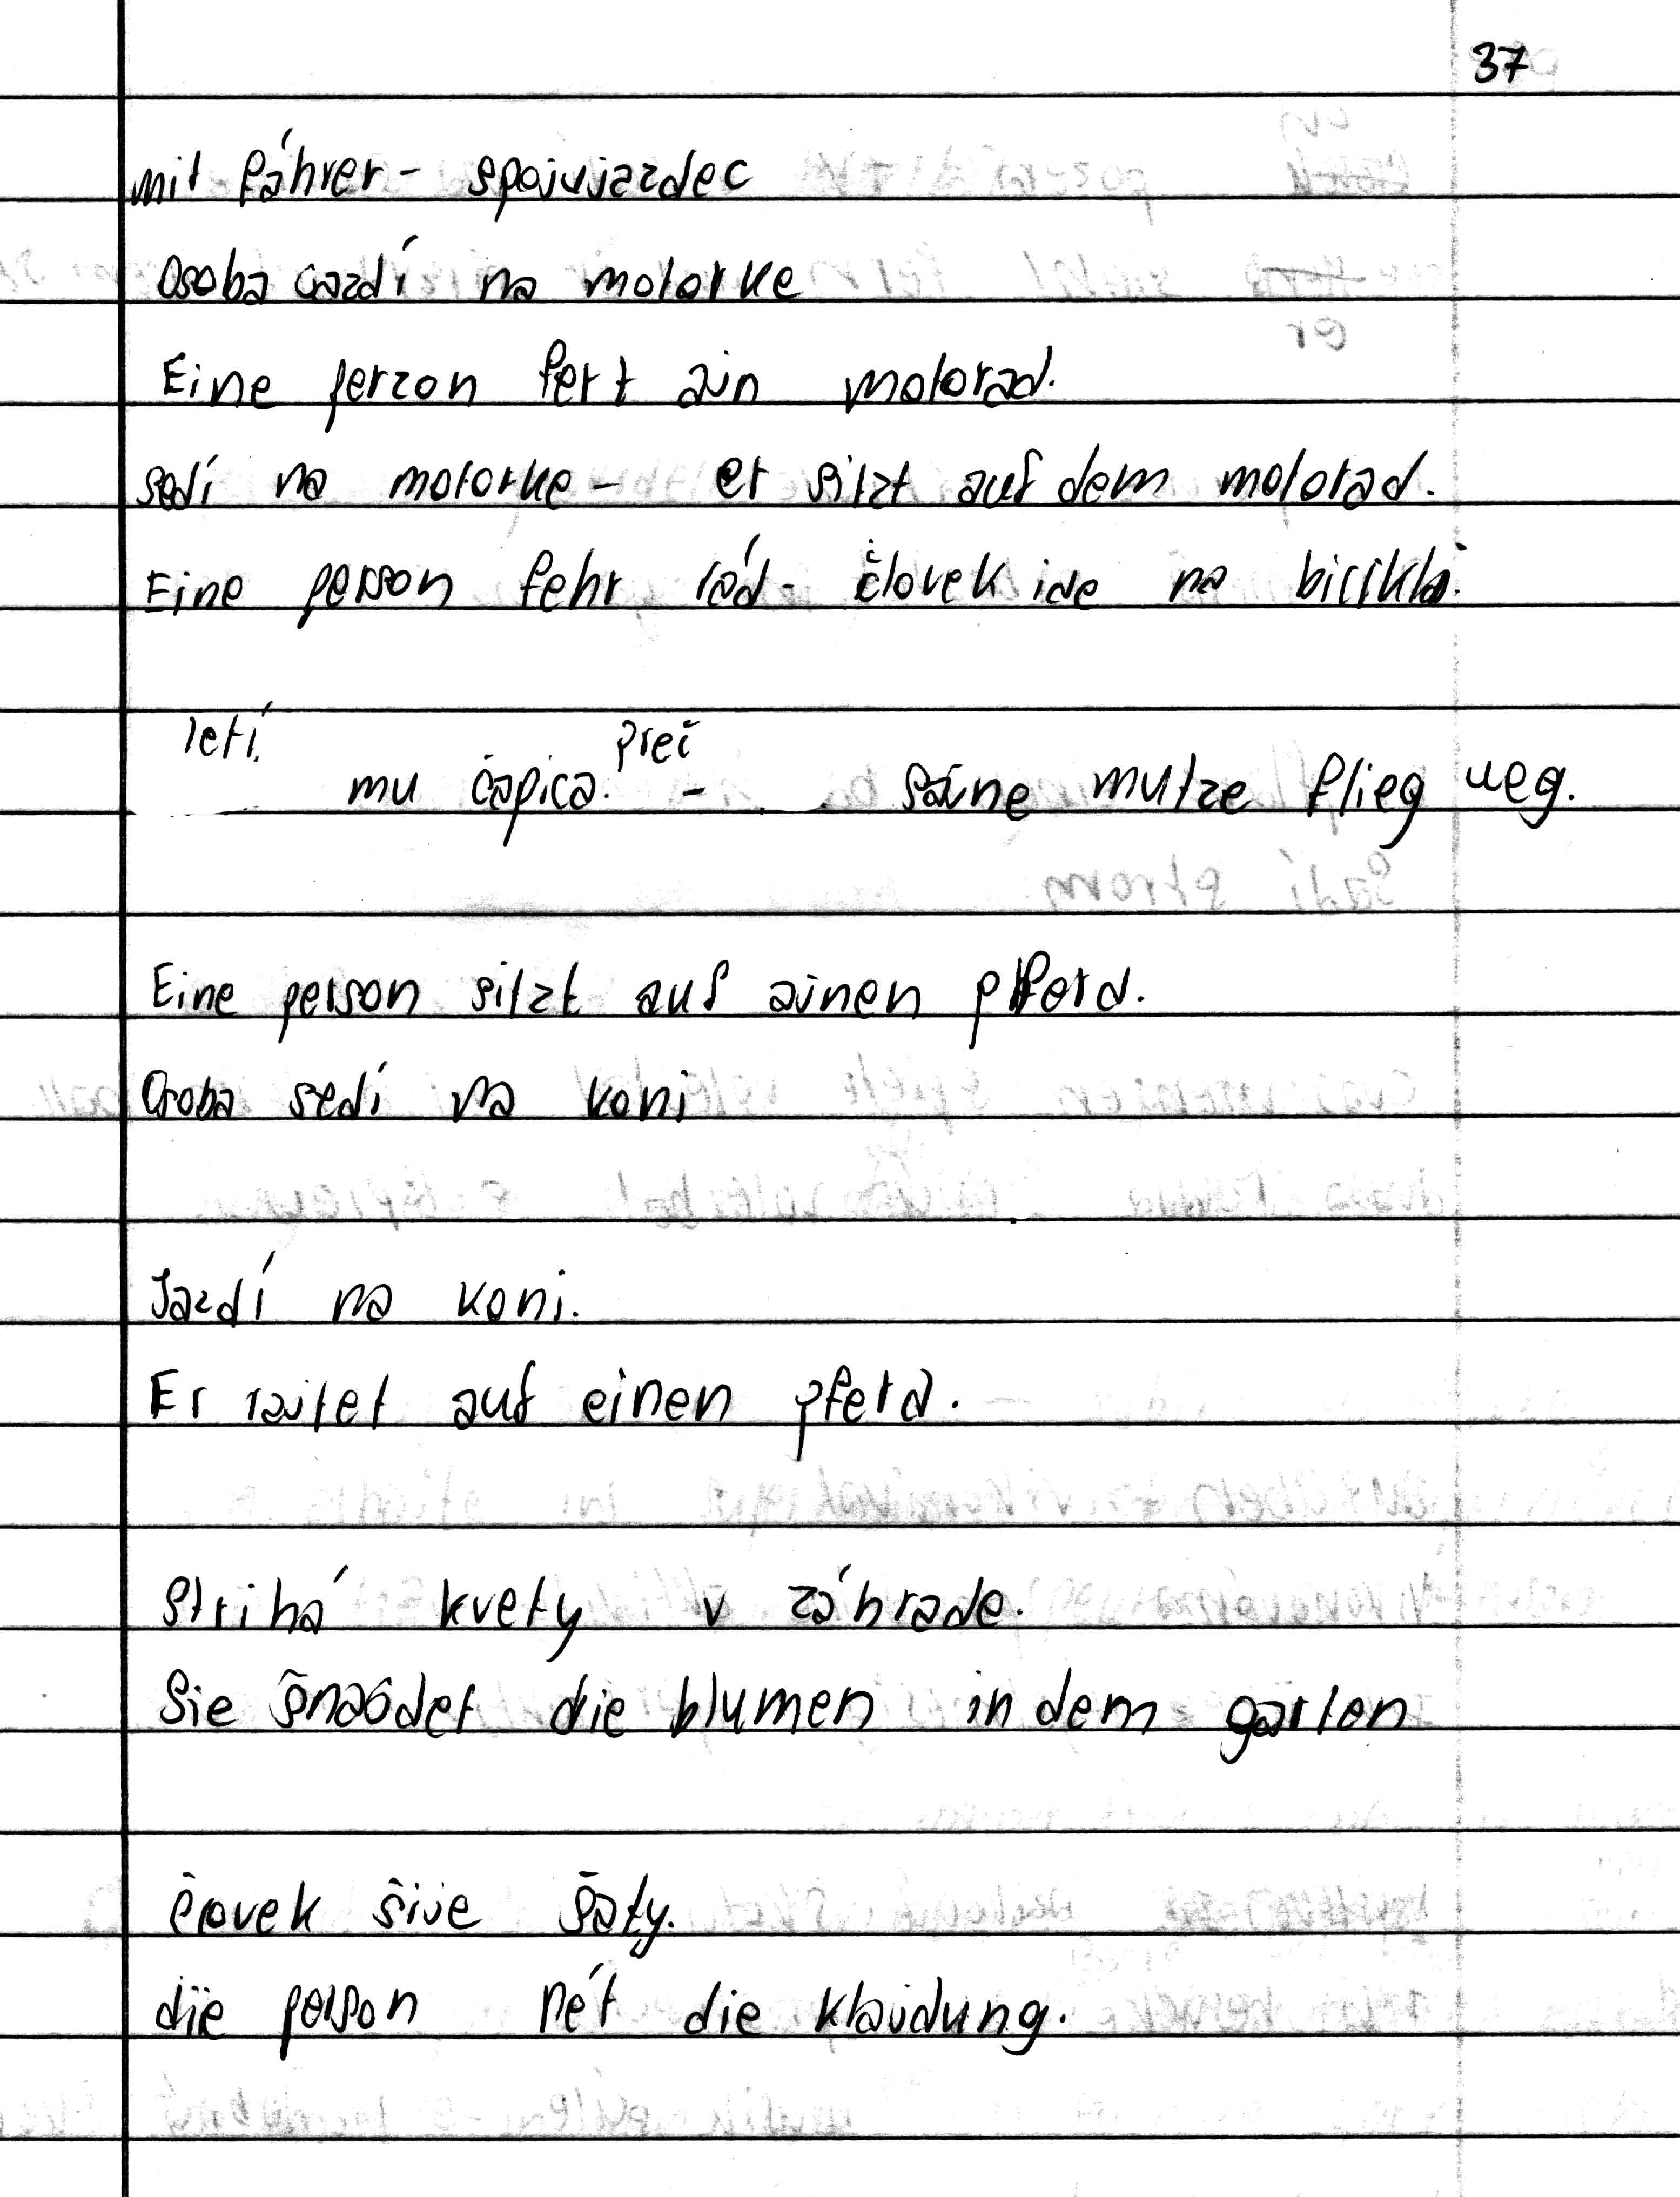 37
mit fáhrer - spojujazdec
Osoba jazdí na motorke
Eine perzon fert ajn motorad.
sedí na motorke - er sitzt auf dem motorad.
Eine person fehr rád - človek ide na bicikli.
letí. preč
mu čapica. - sajne mutze flieg weg.
Eine person sitzt auf ajnen pferd.
Osoba sedí na koni
Jazdí na koni.
Er rajtet auf einen pferd.
Strihá kvety v záhrade.
Sie šnaódet die blumen in dem garten
človek šije šaty.
die person nét die klajdung.